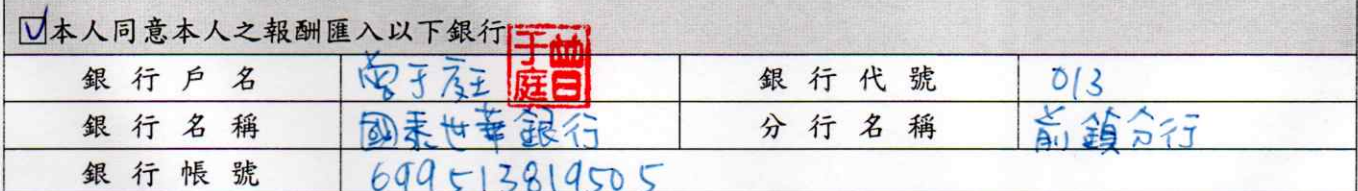 ☑本人同意本人之報酬匯入以下銀行
銀行戶名 曾于庭 曾于庭 銀行代號 013
銀行名稱 國泰世華銀行 分行名稱 前鎮分行
銀行帳號 699513819505